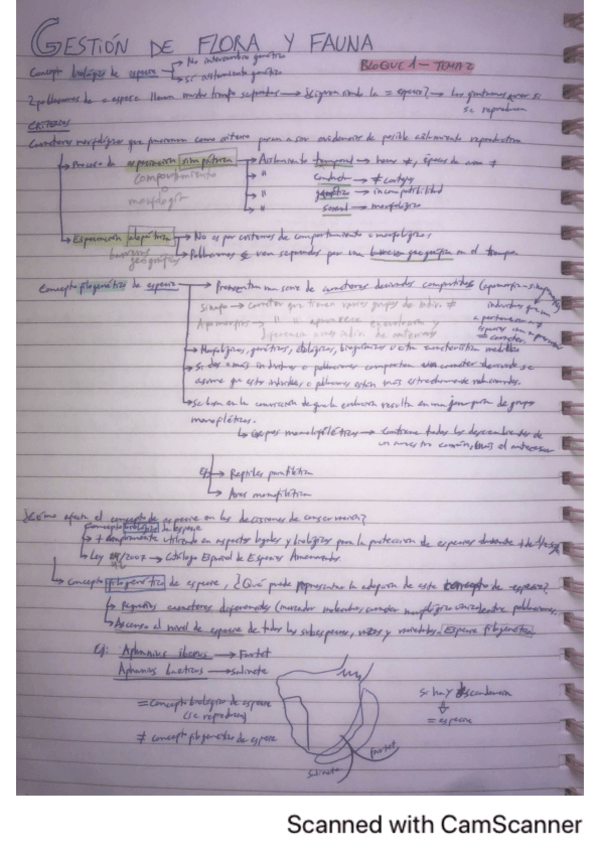 GESTIÓN DE FLORA Y FAUNA
BLOQUE 1 - TEMA 2
Concepto biológico de especie → No intercambio genético
→ Sí aislamiento genético
2 poblaciones de = especie llevan mucho tiempo separadas → ¿Siguen siendo la = especie? → Las juntamos a ver si se reproducen
CRITERIOS
Caracteres morfológicos que funcionan como criterio pasan a ser evidencias de posible aislamiento reproductivo
→ Proceso de especiación simpátrica → Aislamiento temporal → horas ≠, épocas de
comportamiento o morfología
→ " conducta → ≠ cortejo
→ " genético → incompatibilidad
→ " sexual → morfológico
→ Especiación alopátrica → No es por cuestiones de comportamiento o morfológicas
barreras geográficas
→ Poblaciones se ven separadas por una barrera geográfica en el tiempo
Concepto filogenético de especie → Presentan una serie de caracteres derivados compartidos
→ Morfológicos, genéticos, etológicos, bioquímicos u otra característica medible
→ Si dos o más individuos o poblaciones comparten un carácter derivado se
asume que estos individuos o poblaciones están más estrechamente relacionados.
→ Se basa en la convicción de que la evolución resulta en una jerarquía de grupos
monofiléticos.
↳ Grupos monofiléticos → contiene todos los descendientes de
un ancestro común, más el antecesor
Ej: → Reptiles parafilético
→ Aves monofilético
¿Cómo afecta el concepto de especie en las decisiones de conservación?
Concepto biológico de especie
→ + ampliamente utilizado en aspectos legales y biológicos para la protección de especies durante
→ Ley 42/2007 → Catálogo Español de Especies Amenazadas.
→ Concepto filogenético de especie, ¿Qué puede representar la adopción de este concepto de especie?
→ Pequeños caracteres diferenciados (marcador molecular, carácter morfológico entre poblaciones.
→ Ascenso al nivel de especie de todas las subespecies, razas y variedades. Especie filogenética
Ej: Aphanius iberus → Fartet
Aphanius baeticus → Salinete
= concepto biológico de especie
(se reproducen)
≠ concepto filogenético de especie
Si hay descendencia
⇓
= especie
Fartet
Salinete
Scanned with CamScanner